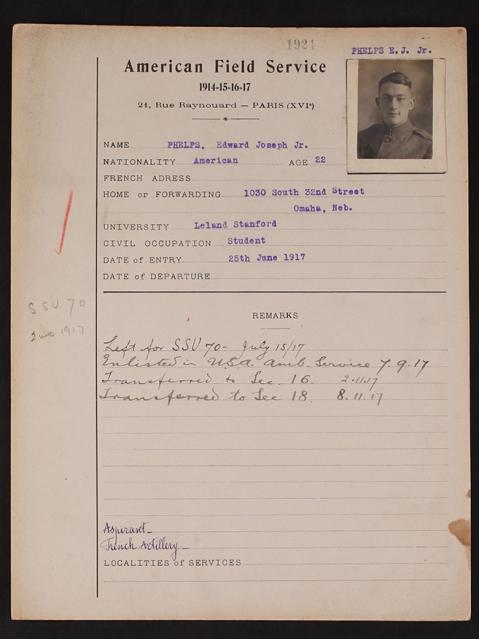 1921
PHELPS E. J. Jr.
American Field Service
1914-15-16-17
21, Rue Raynouard — PARIS (XVIe)
NAME PHELPS, Edward Joseph Jr.
NATIONALITY American AGE 22
FRENCH ADRESS
HOME or FORWARDING 1030 South 32nd Street
Omaha, Neb.
UNIVERSITY Leland Stanford
CIVIL OCCUPATION Student
DATE of ENTRY 25th June 1917
DATE of DEPARTURE
SSU 70
1917
REMARKS
Left for SSU 70 - July 15/17
Enlisted in U.S.A. Amb. Service 7.9.17
Transferred to Sec. 16. 2.11.17
Transferred to Sec 18. 8.11.17
Aspirant
French Artillery
LOCALITIES of SERVICES